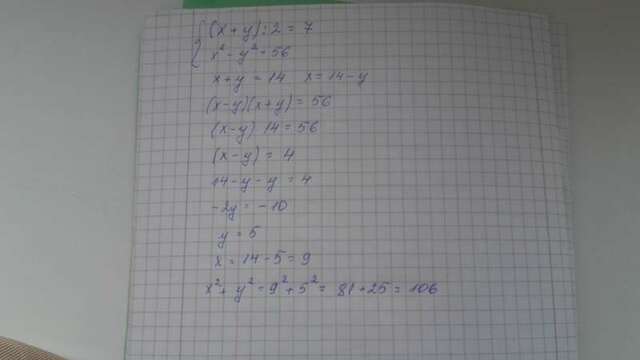 (x+y):2=7
x²-y²=56
x+y = 14 x=14-y
(x-y)(x+y)=56
(x-y) 14=56
(x-y) = 4
14-y-y = 4
-2y = -10
y = 5
x = 14-5 = 9
x²+y²=9²+5²= 81+25 = 106